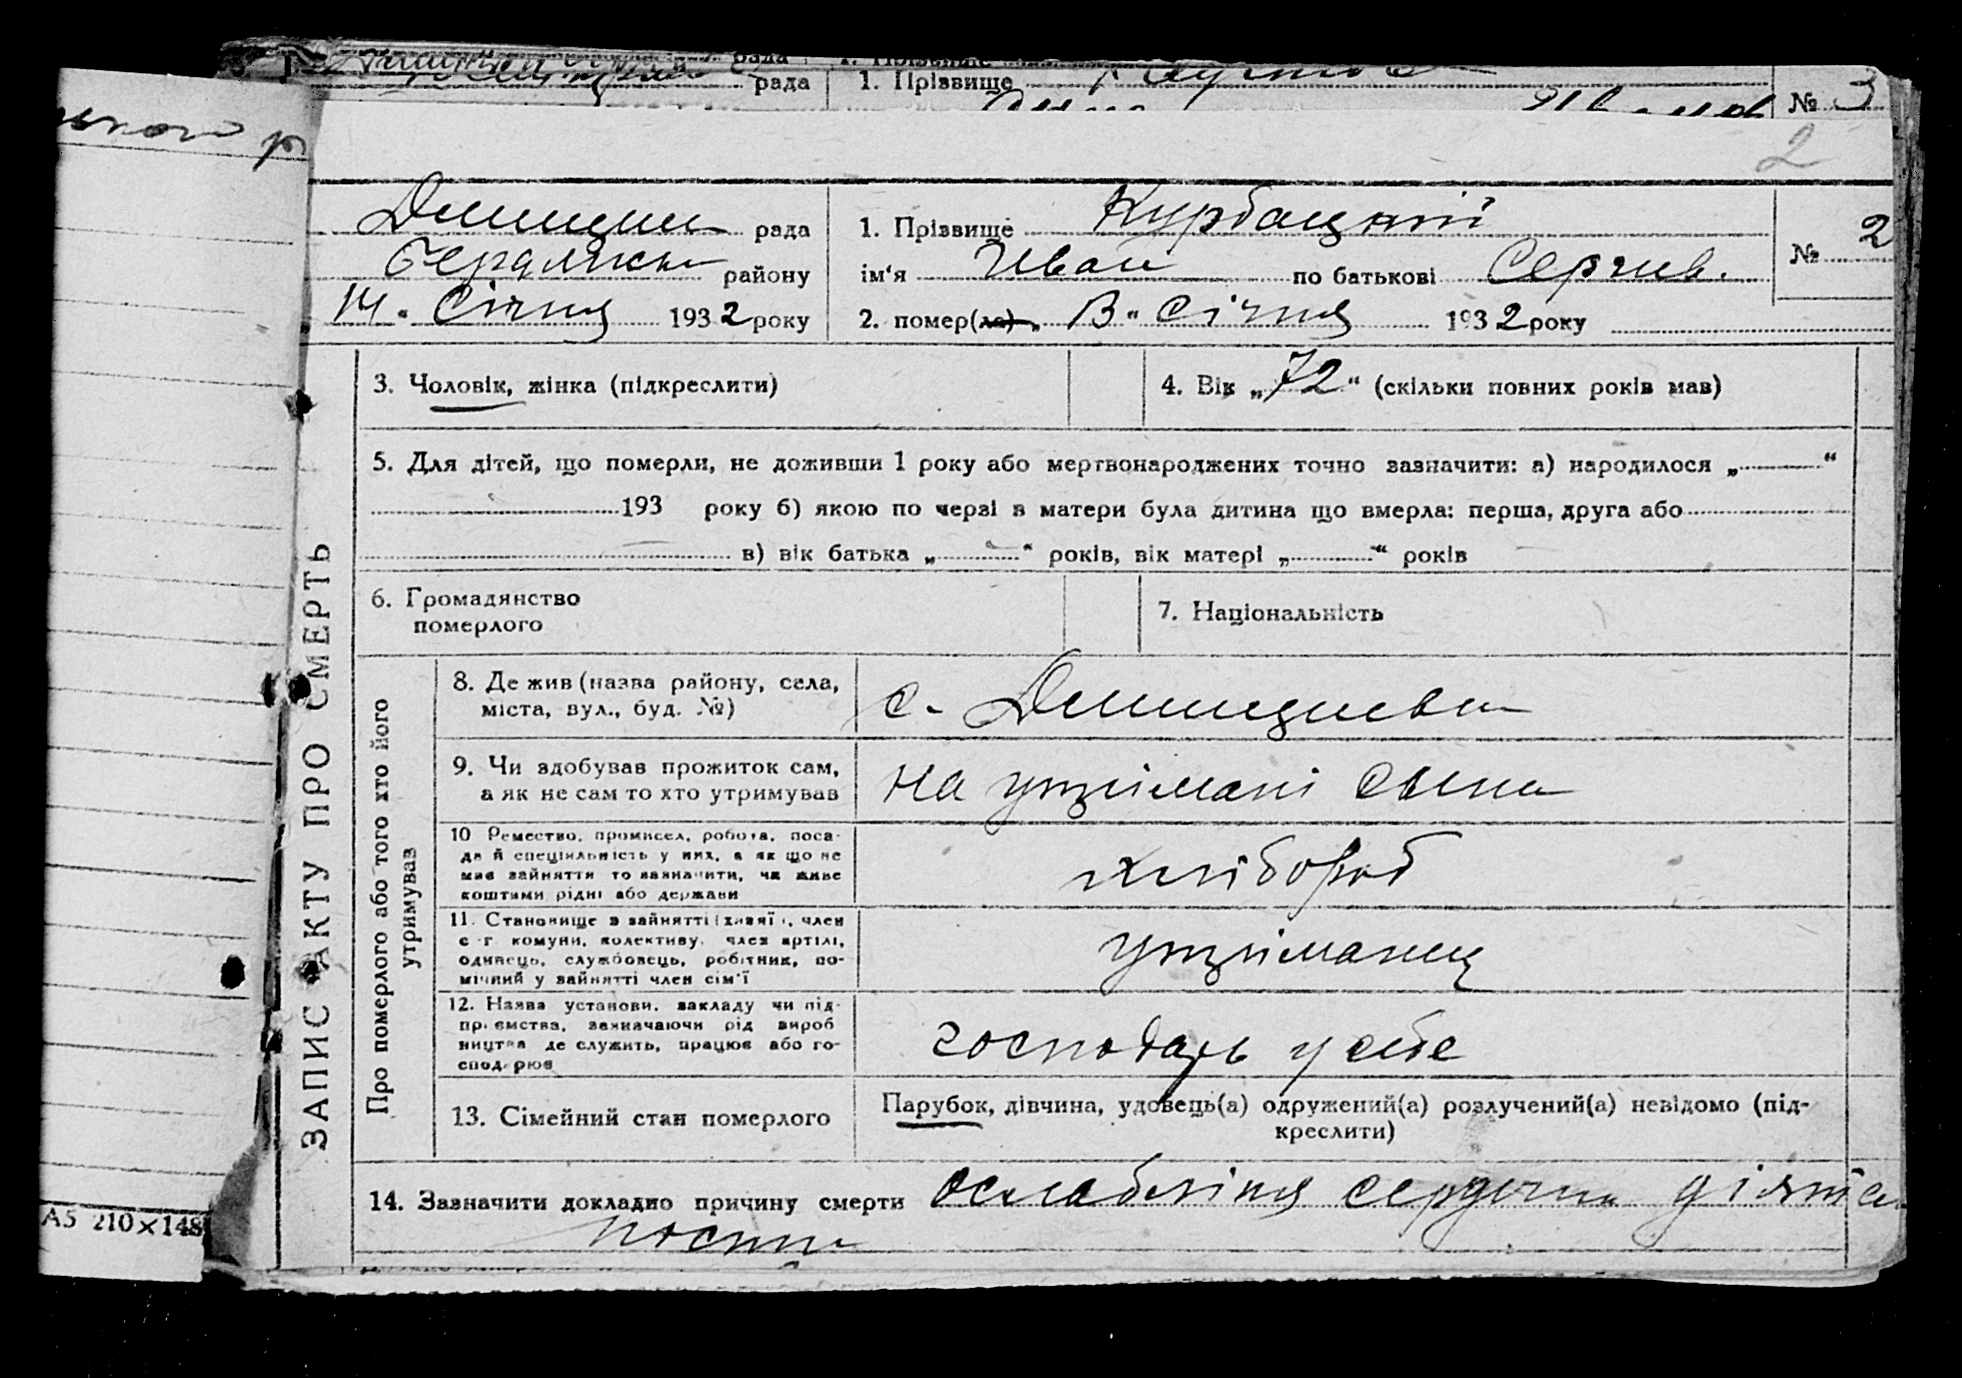 рада 1. Прізвище
№ 3
2
рада 1. Прізвище Курбацкий
№ 2
району ім‘я Иван по батькові Сергиев.
14 „ Січня 1932 року 2. помер(ла) „ 13 “ Січня 1932 року
3. Чоловік, жінка (підкреслити) 4. Вік „72“ (скільки повних років мав)
5. Для дітей, що померли, не доживши 1 року або мертвонароджених точно зазначити: а) народилося „ “
193 року б) якою по черзі в матери була дитина що вмерла: перша, друга або
в) вік батька „ “ років, вік матері „ “ років
6. Громадянство
померлого
7. Національність
ЗАПИС АКТУ ПРО СМЕРТЬ
Про померлого або того хто його
утримував
8. Де жив (назва району, села,
міста, вул., буд. №)
с. Демидиевка
9. Чи здобував прожиток сам,
а як не сам то хто утримував
на утримані сына
10 Ремество, промисел, робота, поса-
да й спеціяльність у них, а як що не
мав зайняття то зазначити, чи живе
коштами рідні або держави
хлібороб
11. Становище в зайнятті (хазяїн, член
с-г комуни, колективу, член артілі,
одинець, службовець, робітник, по-
мічний у зайнятті член сім'ї
утриманец
12. Назва установи, закладу чи під-
приємства, зазначаючи рід вироб
ництва де служить, працює або го-
сподарює
господарь у себе
13. Сімейний стан померлого
Парубок, дівчина, удовець(а) одружений(а) розлучений(а) невідомо (під-
креслити)
14. Зазначити докладно причину смерти ослабління сердечн діяте
ности
А5 210×148